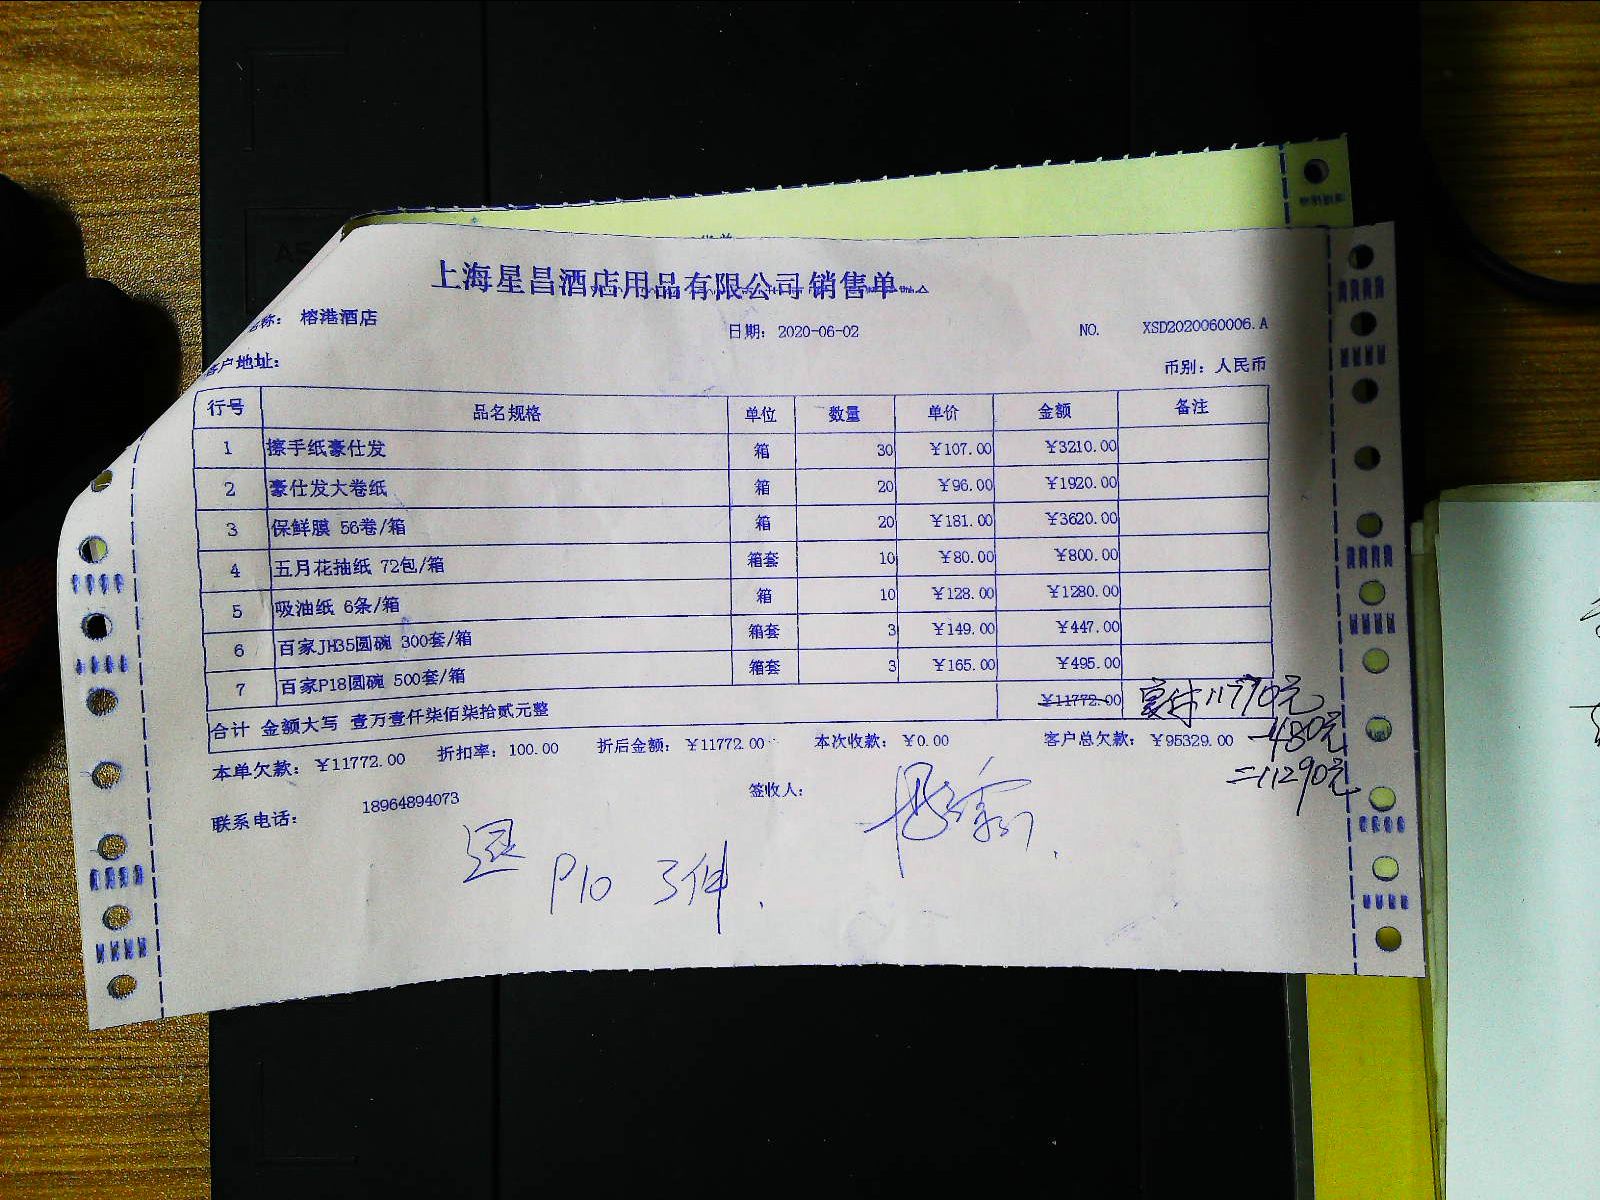 上海星昌酒店用品有限公司销售单
名称: 榕港酒店 日期: 2020-06-02 NO. XSD2020060006.A
客户地址: 币别: 人民币
行号 品名规格 单位 数量 单价 金额 备注
1 擦手纸豪仕发 箱 30 ¥107.00 ¥3210.00
2 豪仕发大卷纸 箱 20 ¥96.00 ¥1920.00
3 保鲜膜 56卷/箱 箱 20 ¥181.00 ¥3620.00
4 五月花抽纸 72包/箱 箱套 10 ¥80.00 ¥800.00
5 吸油纸 6条/箱 箱 10 ¥128.00 ¥1280.00
6 百家JH35圆碗 300套/箱 箱套 3 ¥149.00 ¥447.00
7 百家P18圆碗 500套/箱 箱套 3 ¥165.00 ¥495.00
合计 金额大写 壹万壹仟柒佰柒拾贰元整 ¥11772.00 实付11770元
-480元
=11290元
本单欠款: ¥11772.00 折扣率: 100.00 折后金额: ¥11772.00 本次收款: ¥0.00 客户总欠款: ¥95329.00
联系电话: 18964894073 签收人:
退 P10 3件.